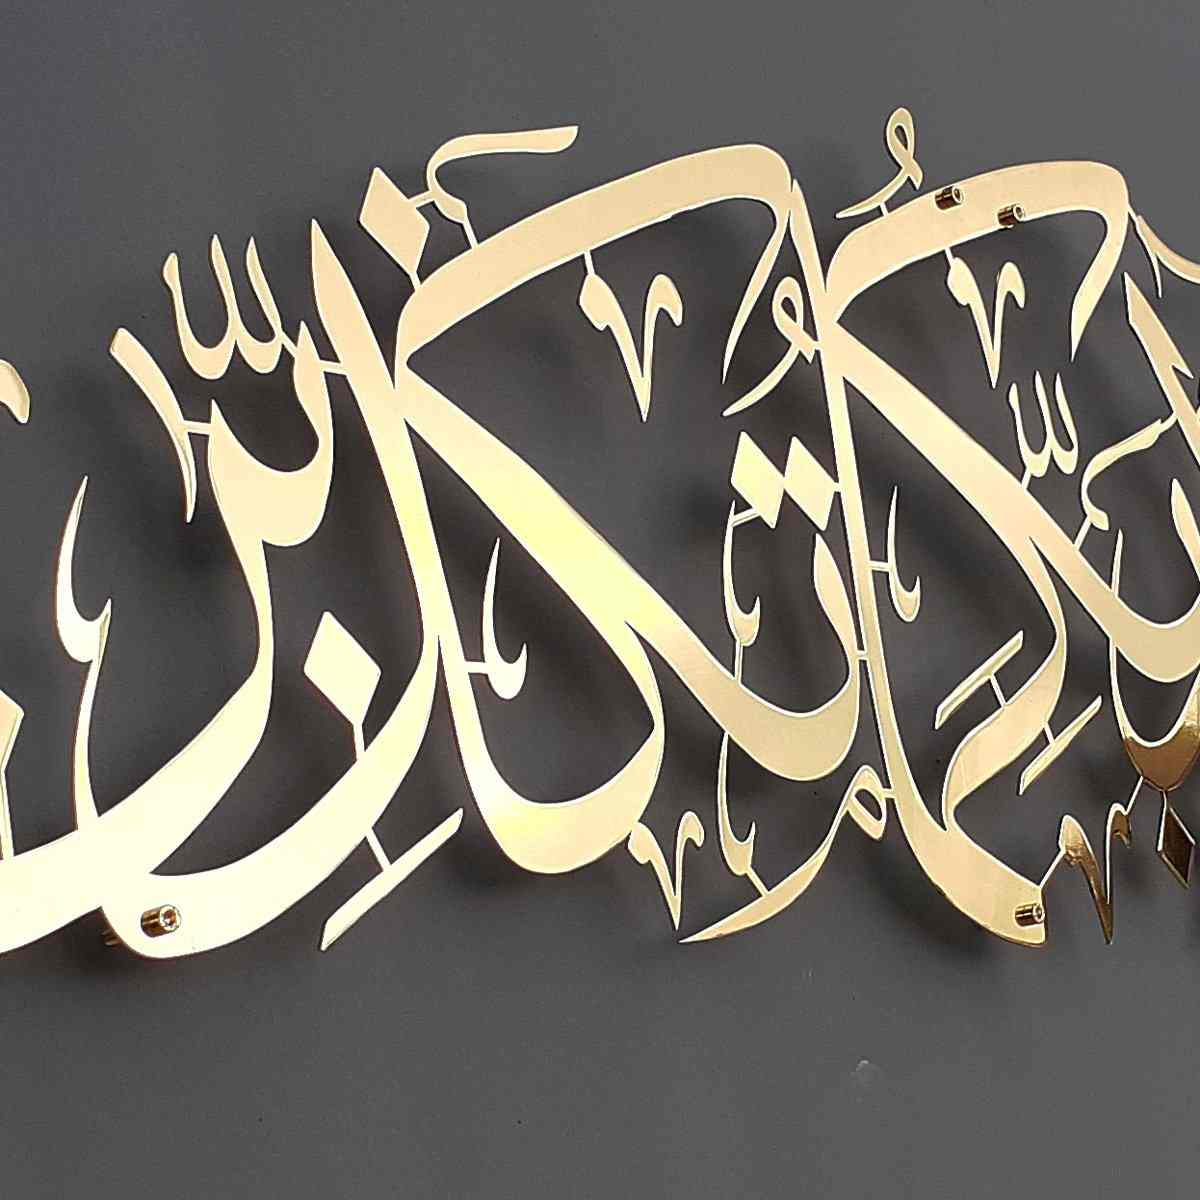 رَبِّكُمَا تُكَذِّبَانِ